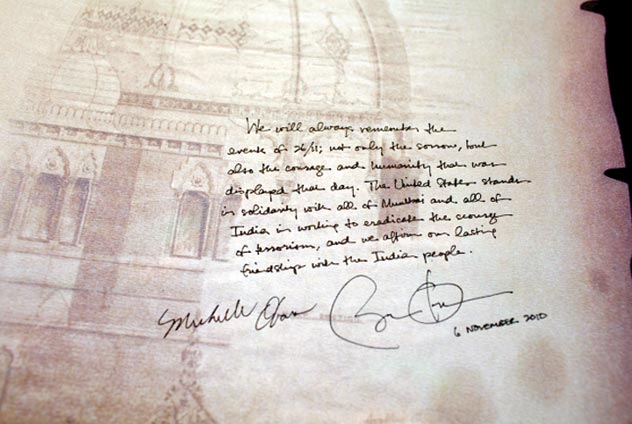 We will always remember the
events of 26/11; not only the sorrow, but
also the courage and humanity that was
displayed that day. The United States stands
in solidarity with all of Mumbai and all of
India in working to eradicate the scourge
of terrorism, and we affirm our lasting
friendship with the Indian people.
Michelle Obama
6 NOVEMBER 2010